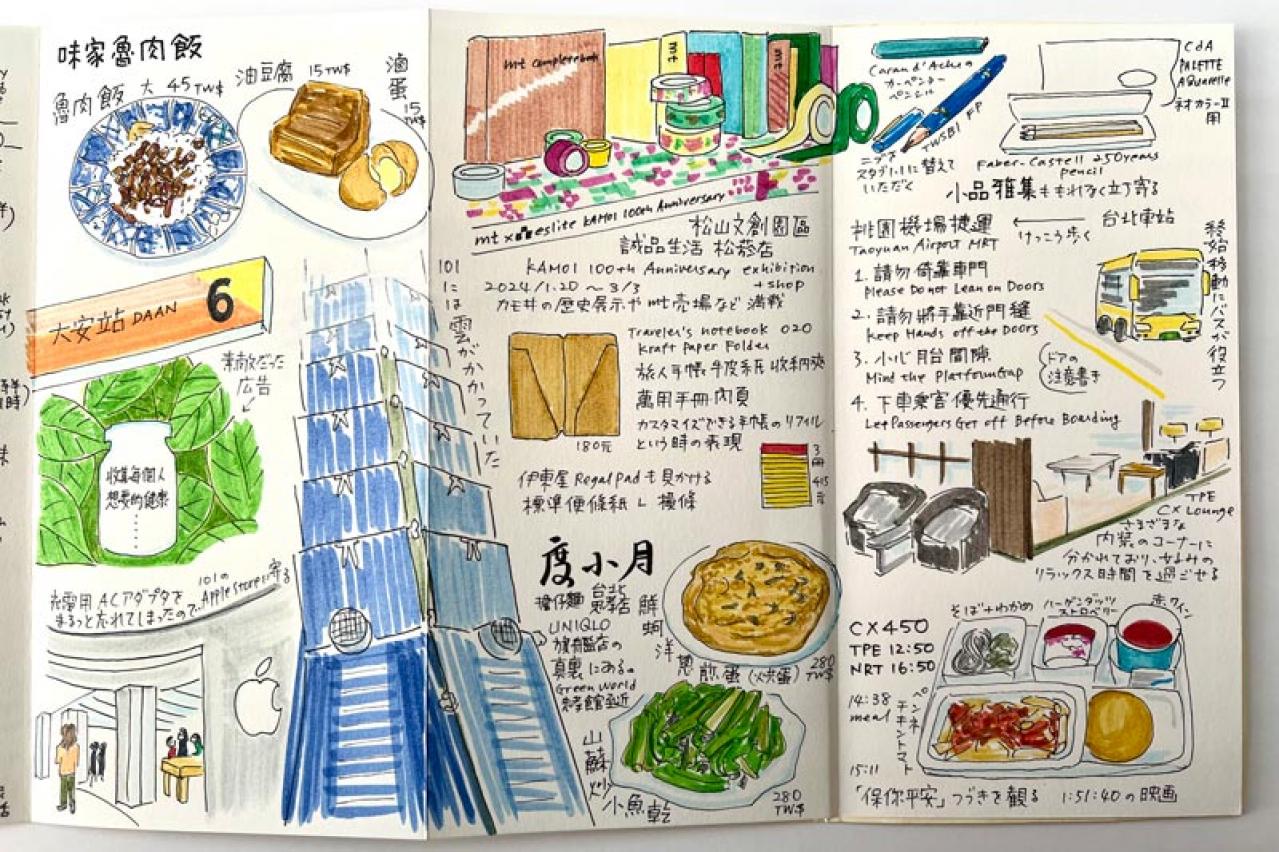 味家魯肉飯
魯肉飯 大 45TW$
油豆腐 15TW$
滷蛋
15
TW$
大安站 DAAN 6
素敵だった
広告
収集每個人
想要的健康
……
充電用ACアダプタを
まるっと忘れてしまったので、
101の
Apple Storeに寄る
101
に
は
雲がかかっていた
mt complete book
mt
mt
mt x eslite KAMOI 100th Anniversary
松山文創園區
誠品生活 松菸店
KAMOI 100th Anniversary exhibition
2024/1.20 〜 3/3 + shop
カモ井の歴史展示やmt売場など満載
Traveler's notebook 020
Kraft Paper Folder
旅人手帳 牛皮紙 收納夾
萬用手冊內頁
カスタマイズできる手帳のリフィル
という時の表現
180元
伊東屋 Regal Padも見かける
標準便條紙 L 橫條
3
冊
415
元
度小月
擔仔麵
台北
忠孝店
UNIQLO
旗艦店の
真裏にある
Green World
忠孝館至近
鮮蚵
洋蔥煎蛋(烘蛋)
280
TW$
山蘇炒
小魚乾
280
TW$
Caran d'Acheの
カーペンター
ペンシル
TWSBI FP
ニブを
スタブ1.1に替えて
いただく
CdA
PALETTE
Aquarelle
ネオカラーII
用
Faber-Castell 250years
pencil
小品雅集ももれなく立ち寄る
桃園機場捷運
Taoyuan Airport MRT
台北車站
けっこう歩く
1. 請勿倚靠車門
Please Do not Lean on Doors
2. 請勿將手靠近門縫
Keep Hands off the Doors
3. 小心月台間隙
Mind the Platform Gap
4. 下車乘客優先通行
Let Passengers Get off Before Boarding
ドアの
注意書き
終始移動にバスが役立つ
TPE
CX Lounge
さまざまな
内装のコーナーに
分かれており、
リラックス時間を過ごせる
CX450
TPE 12:50
NRT 16:50
14:38
meal
15:11
ペンネ
チキントマト
そば+わかめ
ハーゲンダッツ
ストロベリー
赤ワイン
「保你平安」つづきを観る 1:51:40の映画